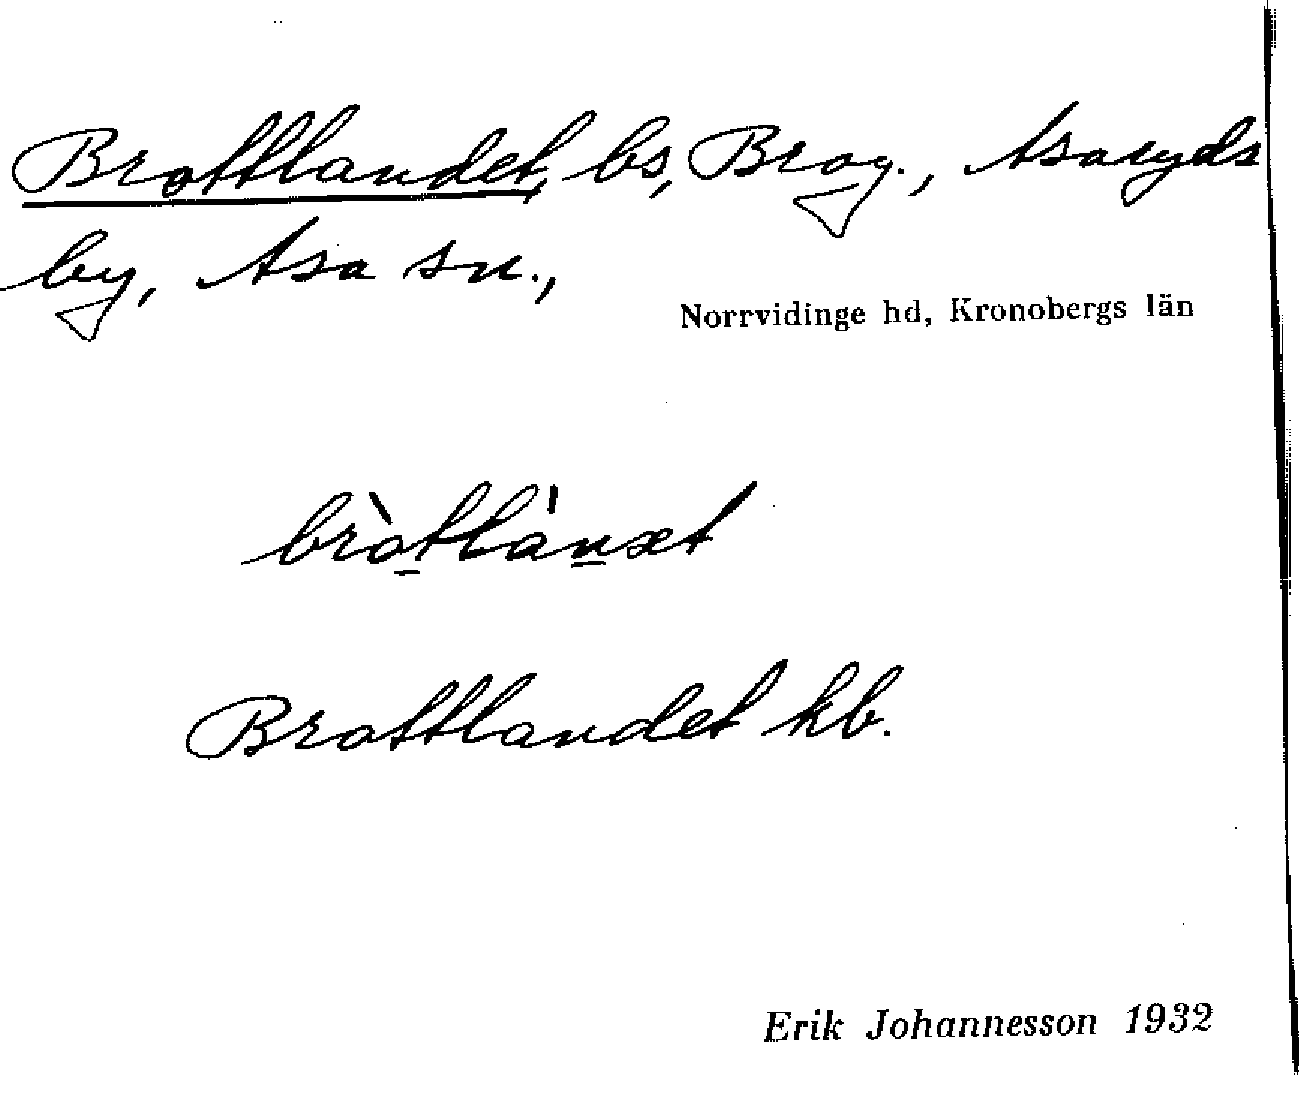 Brottlandet, bs, Brog., Asaryds
by, Asa sn.,
Norrvidinge hd, Kronobergs län
bròtla'nxt
Brottlandet kb.
Erik Johannesson 1932